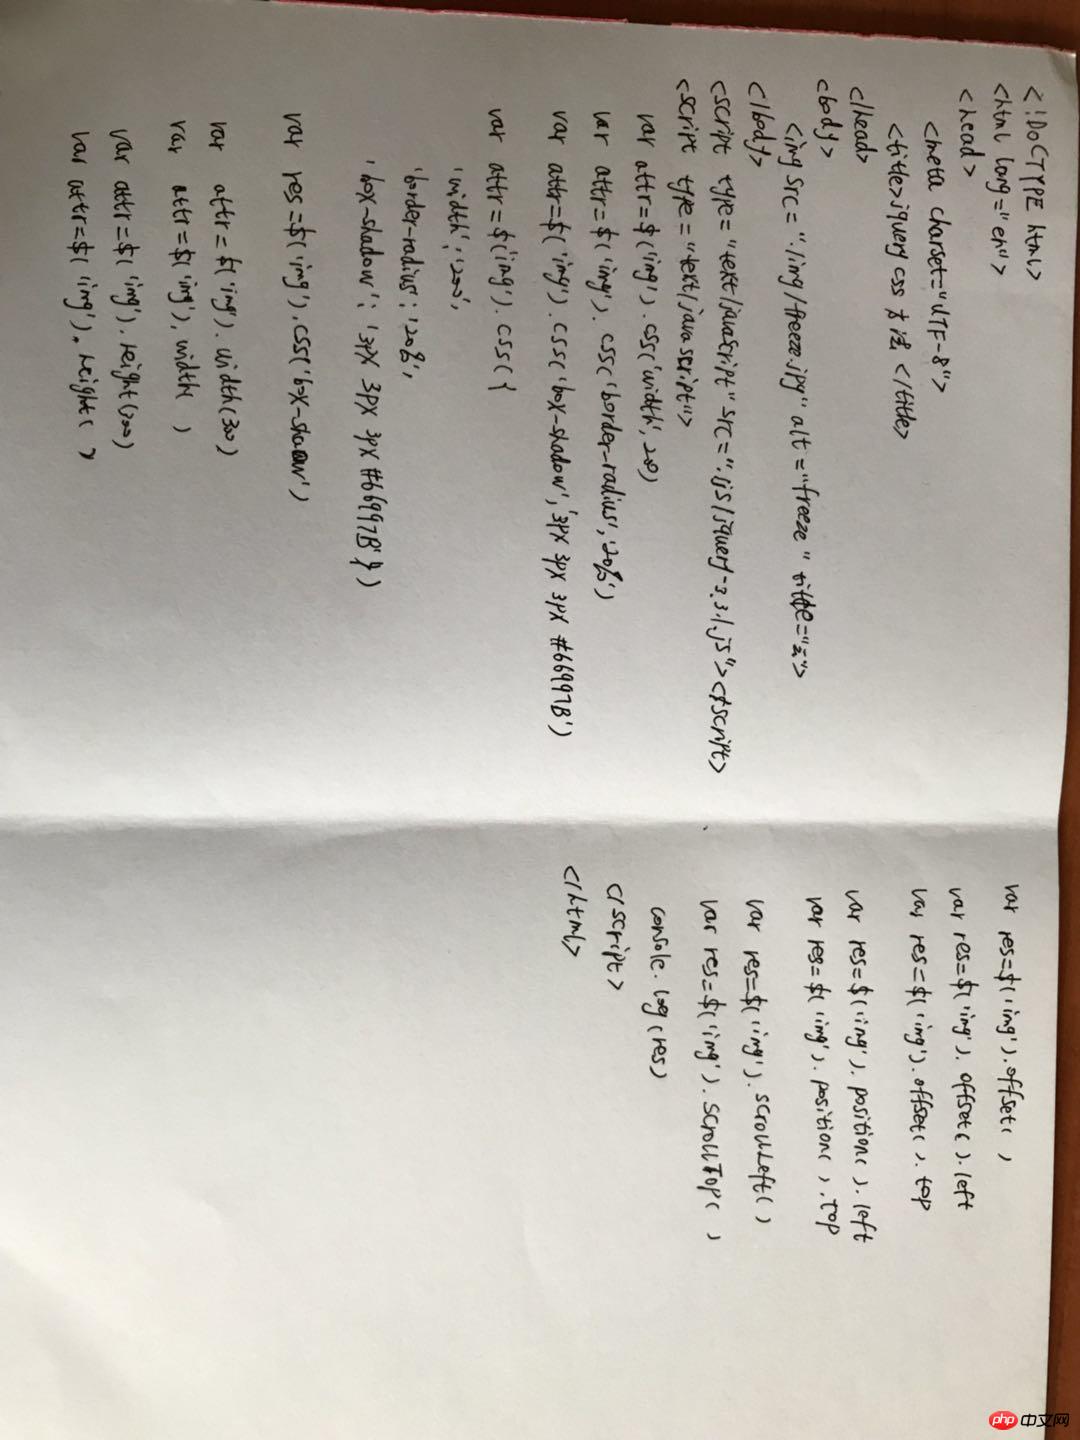 <!DOCTYPE html>
<html lang="en">
<head>
<meta charset="UTF-8">
<title>jquery css 方法 </title>
</head>
<body>
<img src="./img/freeze.jpg" alt="freeze" title="">
</body>
<script type="text/javascript" src="./js/jquery-3.3.1.js"></script>
<script type="text/javascript">
var attr=$('img').css('width',20)
var attr=$('img').css('border-radius','20%')
var attr=$('img').css('box-shadow','3px 3px 3px #66997B')
var attr=$('img').css({
'width':'200',
'border-radius':'20%',
'box-shadow':'3px 3px 3px #66997B'})
var res=$('img').css('box-shadow')
var attr=$('img').width(300)
var attr=$('img').width( )
var attr=$('img').height(200)
var attr=$('img').height( )
var res=$('img').offset( )
var res=$('img').offset( ).left
var res=$('img').offset( ).top
var res=$('img').position( ).left
var res=$('img').position( ).top
var res=$('img').scrollLeft( )
var res=$('img').scrollTop( )
console.log(res)
</script>
</html>
php 中文网